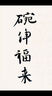 碗伸福来